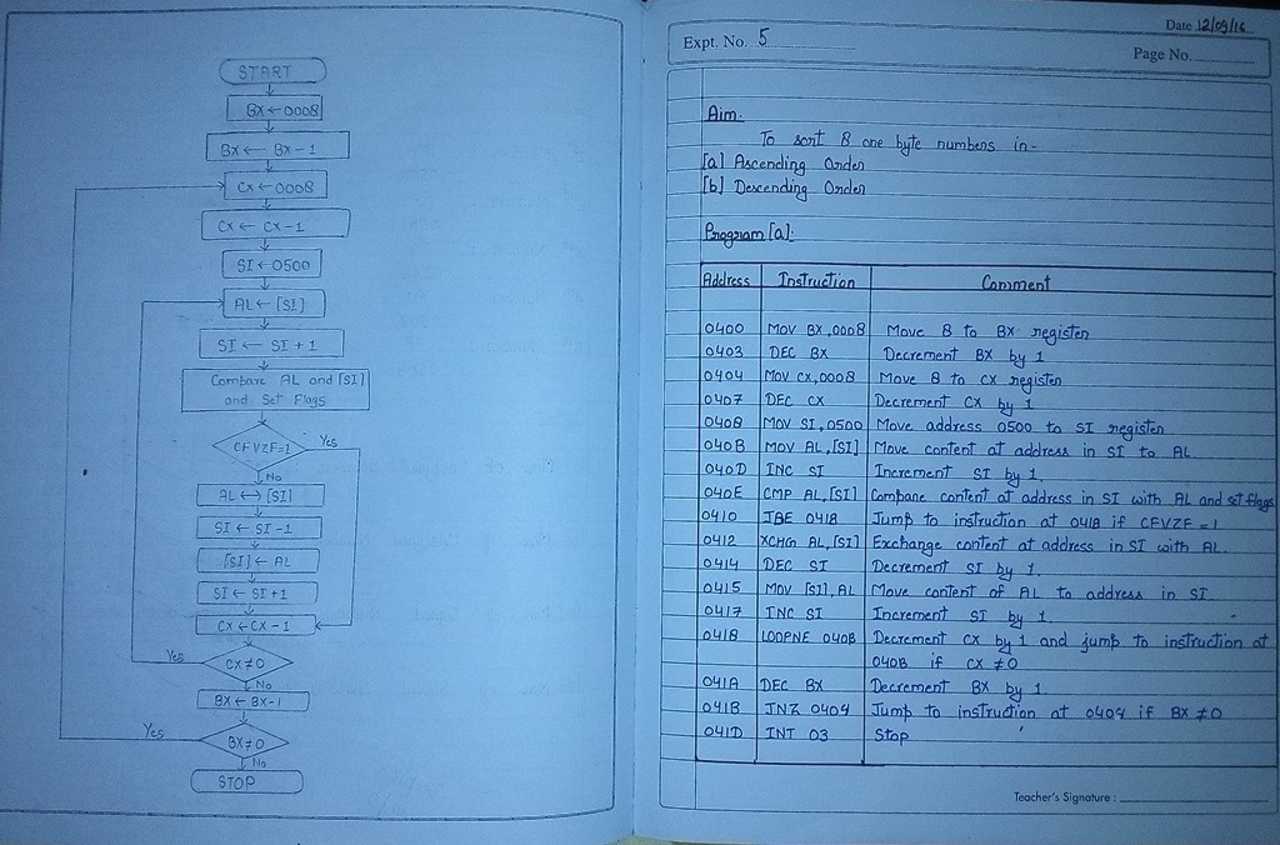 START
BX ← 0008
BX ← BX - 1
CX ← 0008
CX ← CX - 1
SI ← 0500
AL ← [SI]
SI ← SI + 1
Compare AL and [SI]
and Set Flags
CFVZF=1
Yes
No
AL ↔ [SI]
SI ← SI - 1
[SI] ← AL
SI ← SI + 1
CX ← CX - 1
CX ≠ 0
Yes
No
BX ← BX - 1
BX ≠ 0
Yes
No
STOP
Date 12/09/16
Expt. No. 5
Page No.
Aim:
To sort 8 one byte numbers in-
[a] Ascending Order
[b] Descending Order
Program [a]:
Address Instruction Comment
0400 MOV BX,0008 Move 8 to BX register
0403 DEC BX Decrement BX by 1
0404 MOV CX,0008 Move 8 to CX register
0407 DEC CX Decrement CX by 1
0408 MOV SI,0500 Move address 0500 to SI register
040B MOV AL,[SI] Move content at address in SI to AL
040D INC SI Increment SI by 1.
040E CMP AL,[SI] Compare content at address in SI with AL and set flags
0410 JBE 0418 Jump to instruction at 0418 if CFVZF = 1
0412 XCHG AL,[SI] Exchange content at address in SI with AL.
0414 DEC SI Decrement SI by 1.
0415 MOV [SI],AL Move content of AL to address in SI
0417 INC SI Increment SI by 1.
0418 LOOPNE 040B Decrement CX by 1 and jump to instruction at
040B if CX ≠ 0
041A DEC BX Decrement BX by 1.
041B JNZ 0404 Jump to instruction at 0404 if BX ≠ 0
041D INT 03 Stop
Teacher's Signature :